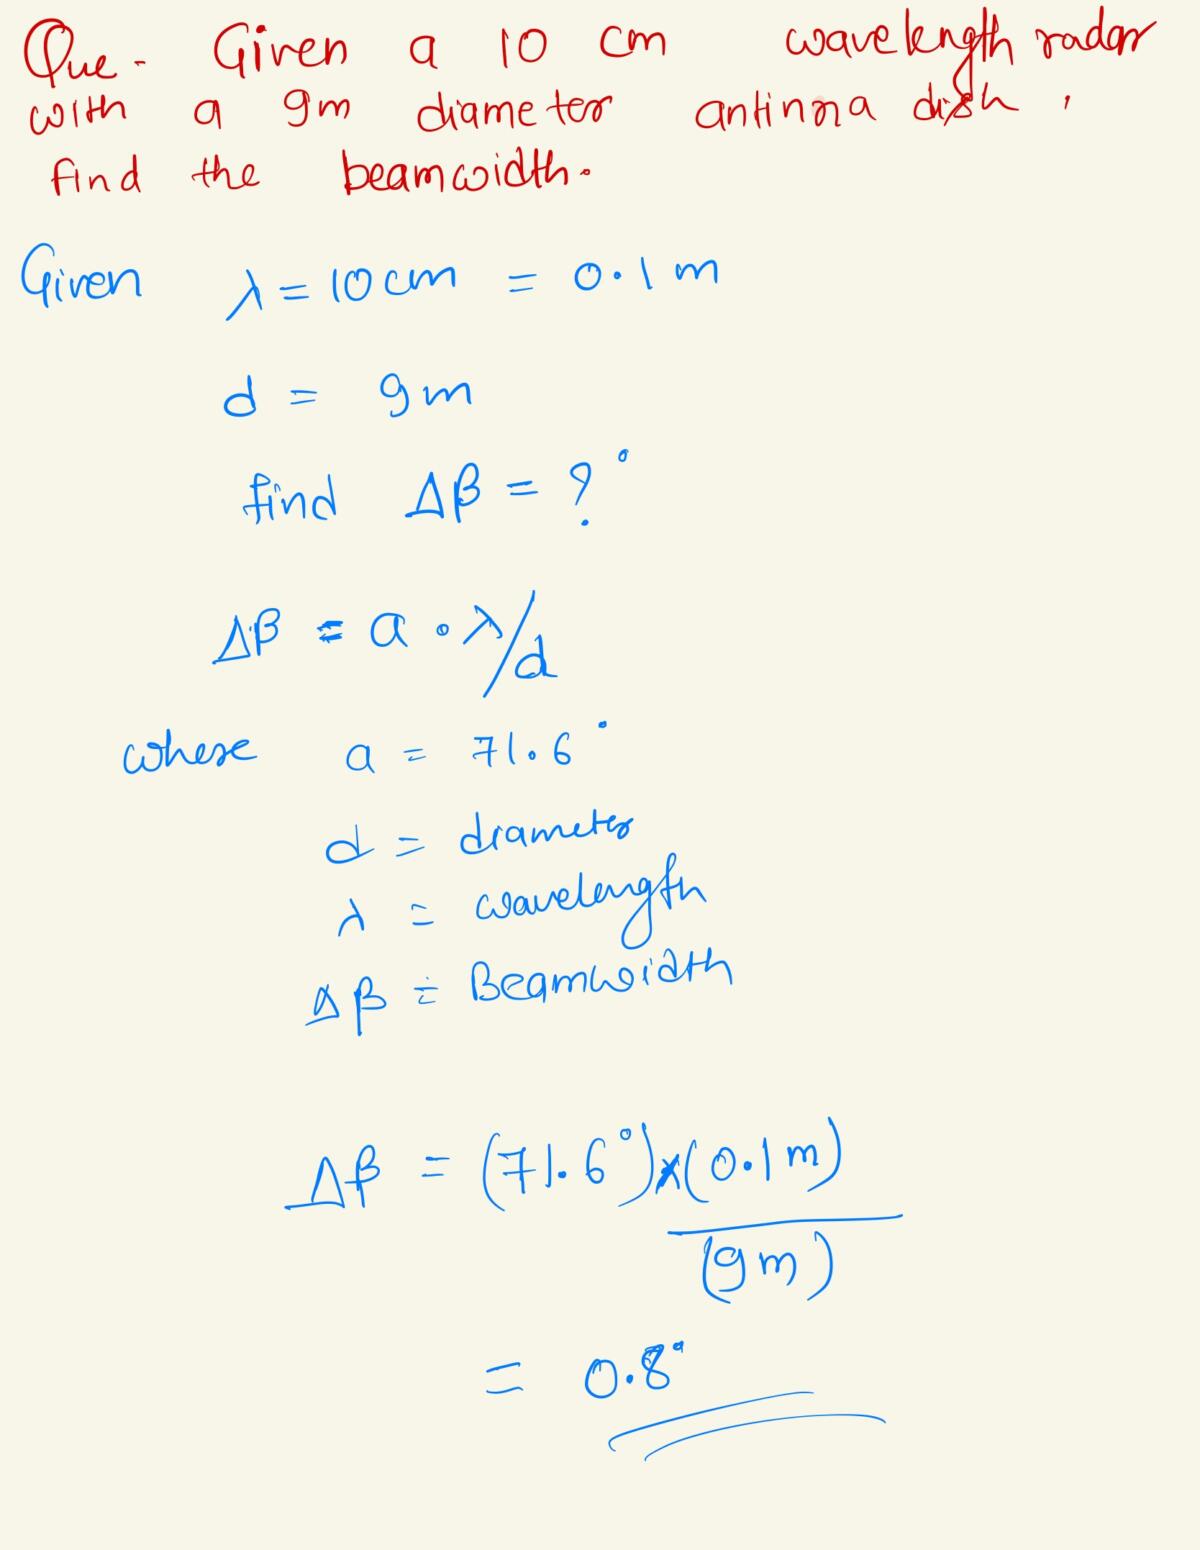 Que - Given a 10 cm wavelength radar
with a 9m diameter antinna dish,
find the beamwidth.
Given λ = 10 cm = 0.1 m
d = 9m
find Δβ = ?°
Δβ = a . λ/d
where a = 71.6°
d = diameter
λ = wavelength
Δβ = Beamwidth
Δβ = (71.6°)x(0.1m)
(9m)
= 0.8°